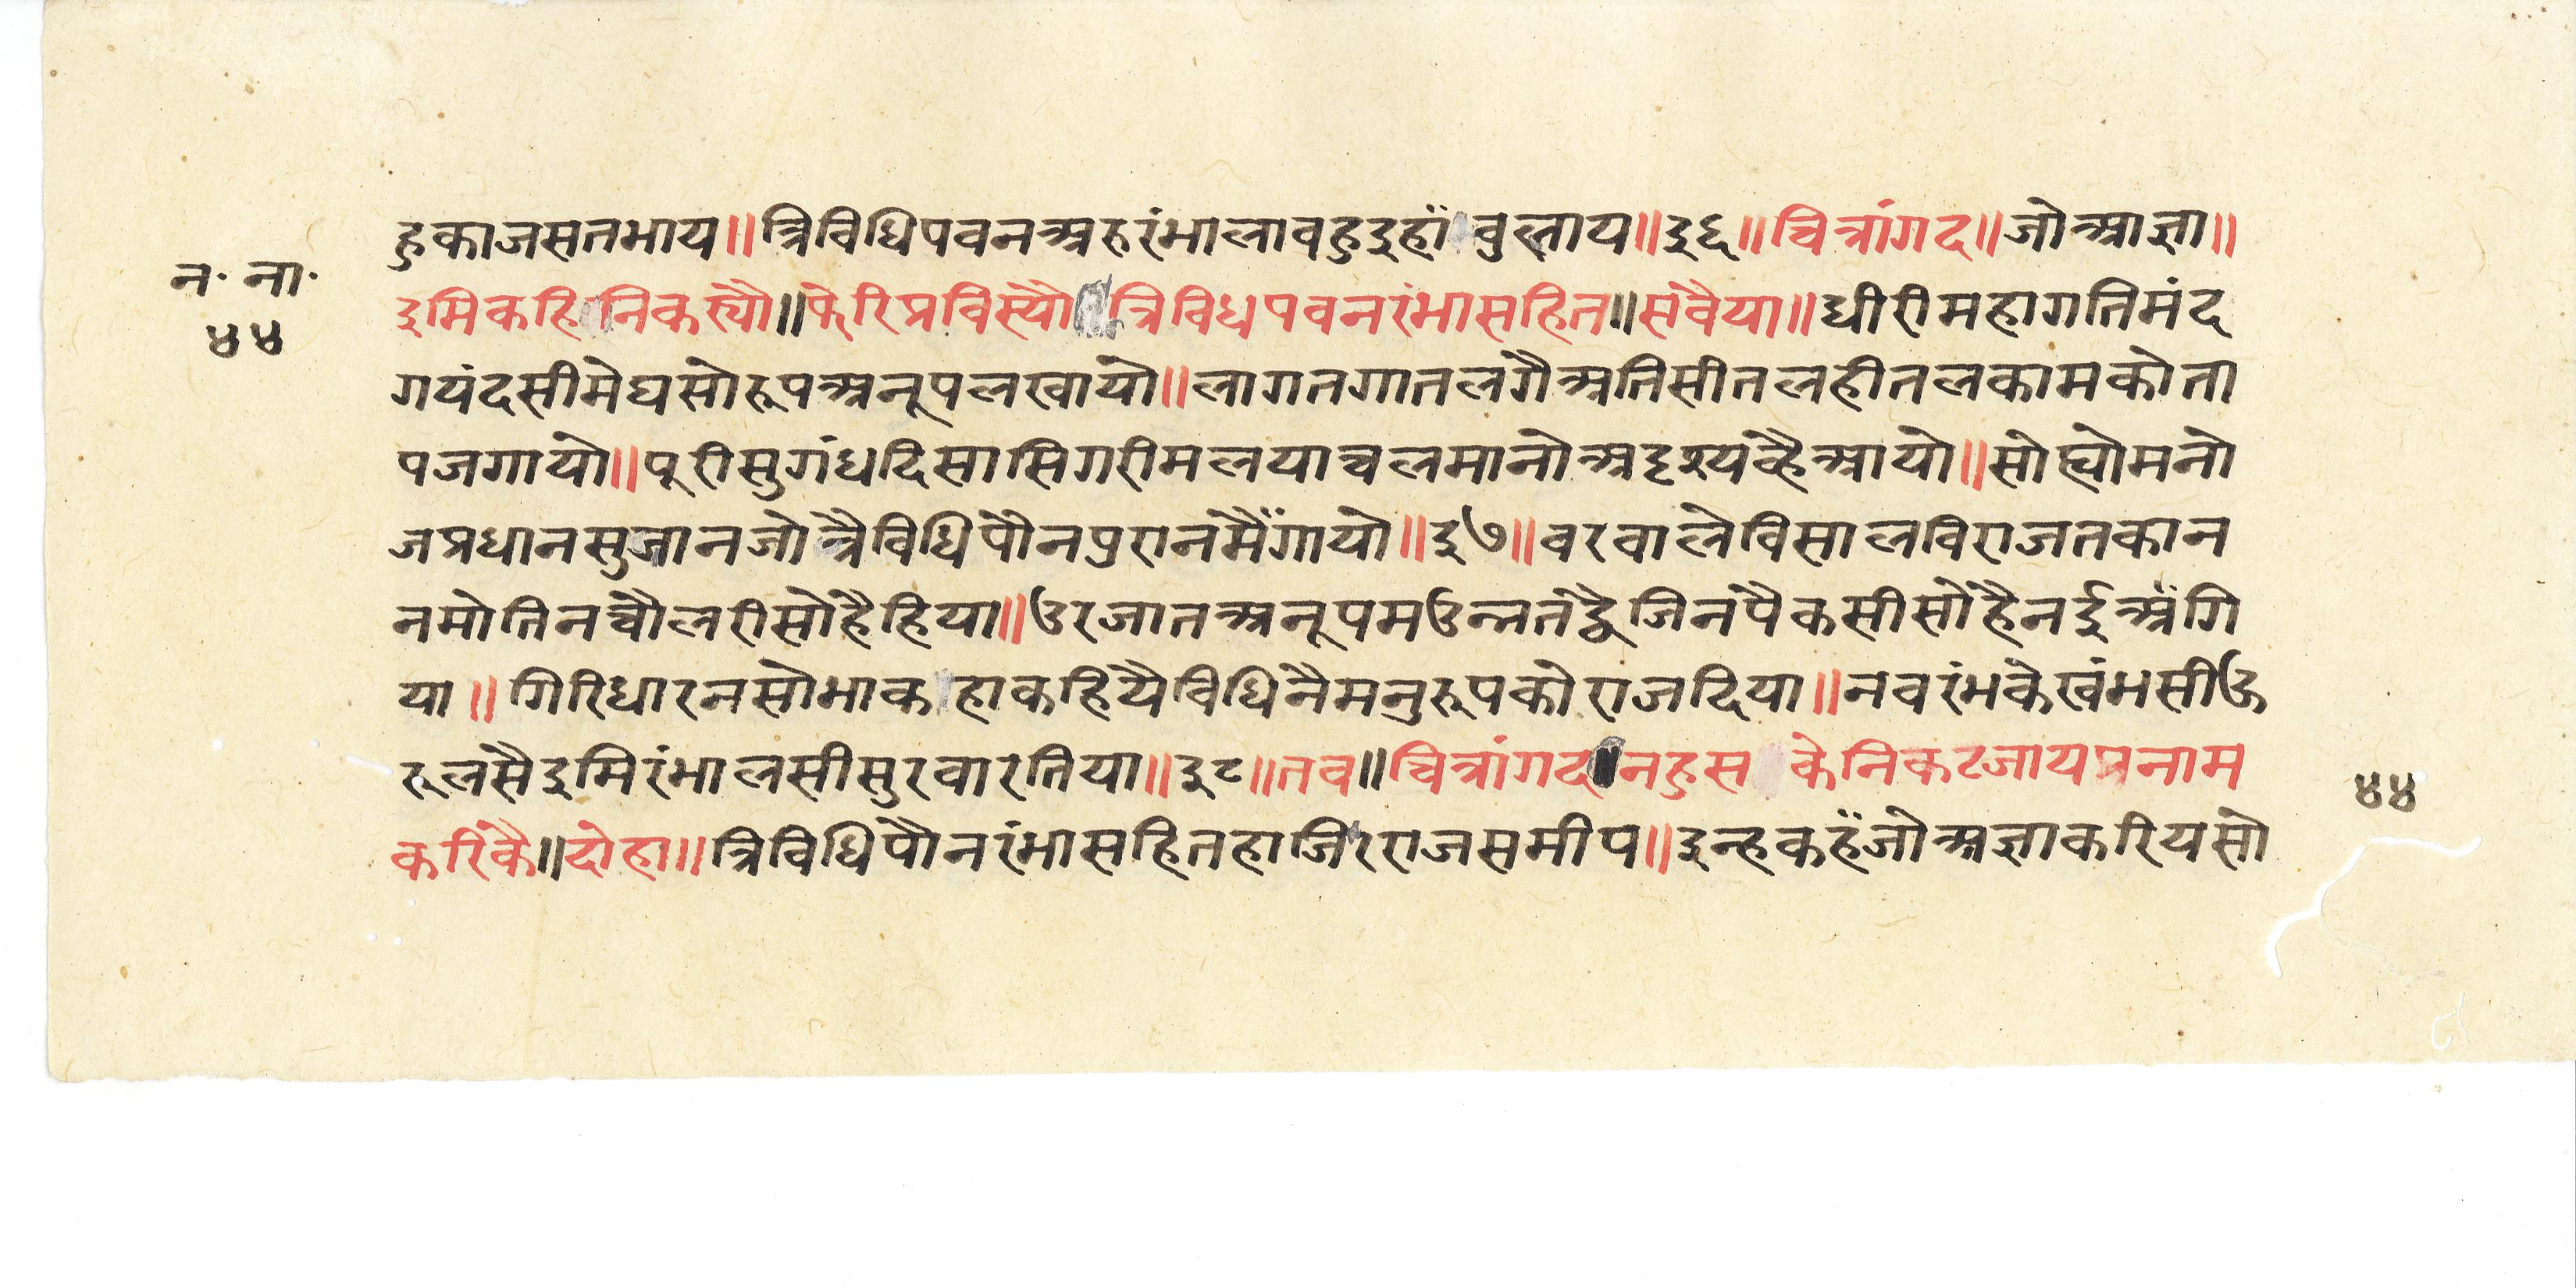 हुकाजसतभाय॥त्रिविधिपवनअरुरंभालावहुइहाँ वुलाय॥३६॥चित्रांगद॥जोआज्ञा॥
न॰ ना॰
४४
इमिकहि निकस्यौ॥फेरिप्रविस्यौ त्रिविधपवनरंभासहित॥सवैया॥धीरीमहागतिमंद
गयंदसीमेघसोरूपअनूपलखायो॥लागतगातलगैअतिसीतलहीतलकामकोता
पजगायो॥पूरीसुगंधदिसासिगरीमलयाचलमानोअदृश्यव्हैआयो॥सोह्योमनो
जप्रधानसुजानजोत्रैविधिपौनपुरानमैँगायो॥३७॥वरवालेविसालविराजतकान
नमोतिनचौलरीसोहैहिया॥उरजातअनूपमउन्नतद्वैजिनपैकसीसोहैनईअँगि
या॥गिरिधारनसोभाक हाकहियैविधिनैमनुरूपकोराजदिया॥नवरंभकेखंभसीऊ
रूलसैइमिरंभालसीसुरवारतिया॥३८॥तव॥चित्रांगद॥नहुस केनिकटजायप्रनाम
४४
करिकै॥दोहा॥त्रिविधिपौनरंभासहितहाजिरराजसमीप॥इन्हकहँजोअज्ञाकरियसो